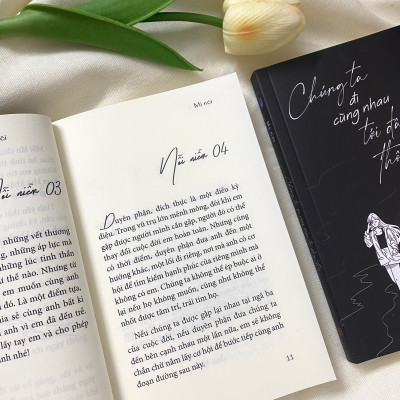 nỗi niềm 03
những vết thương
những áp lực mà
những lúc tinh thần
thế nào. Nhưng từ
em muốn cùng anh
đó. Là một điểm tựa,
chia sẻ cùng anh bất kì
anh vì em đã đến trễ.
lấy tay em và cho phép
anh nhé!
Mi nói
nỗi niềm 04
Duyên phận, đích thực là một điều kỳ
diệu. Trong vũ trụ lớn mênh mông, đôi khi em
gặp được người mình cần gặp, người đó có thể
thay đổi cuộc đời em hoàn toàn. Nhưng cũng
có thời điểm, duyên phận đưa anh đến một
hướng khác, một lối đi riêng, nơi mà anh có cơ
hội để tìm kiếm hạnh phúc của riêng mình mà
không có em. Chúng ta không thể ép buộc ai ở
lại nếu họ không muốn, cũng như không thể
nhốt được tâm trí, trái tim họ.
Nếu chúng ta được gặp lại nhau tại ngã ba
của cuộc đời, nếu duyên phận đưa chúng ta
đến bên cạnh nhau một lần nữa, em sẽ không
chần chừ nắm lấy cơ hội để bước tiếp cùng anh
đoạn đường sau này.
11
Chúng ta
đi
cùng nhau
tới đây
thôi